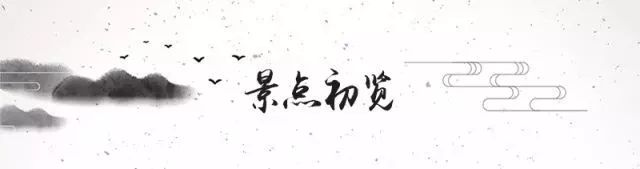 景点初览